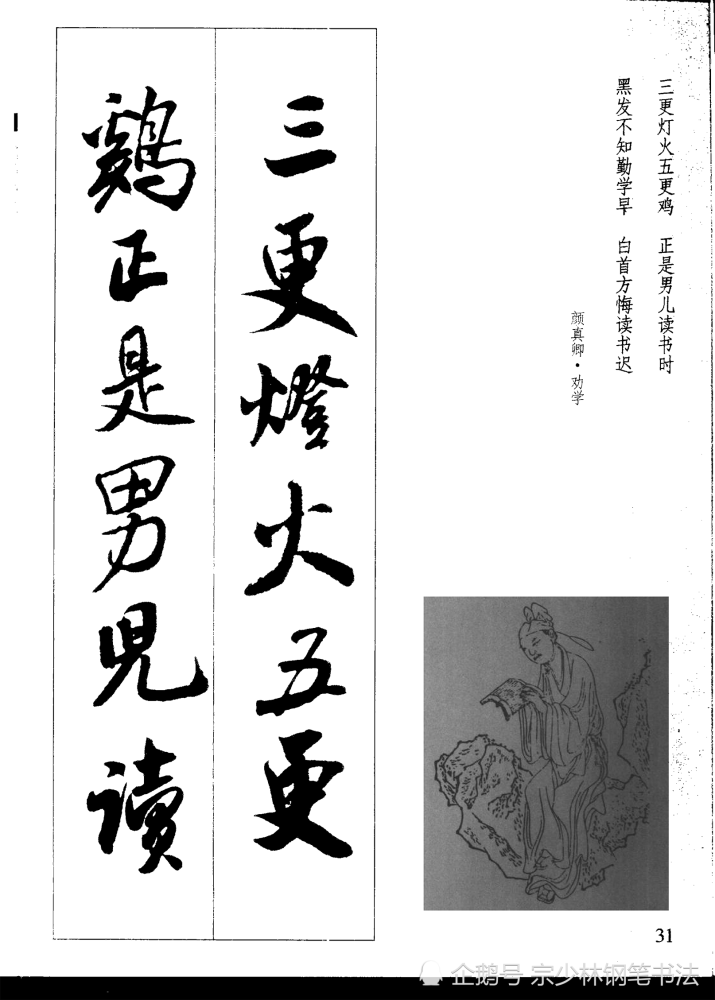 三更灯火五更鸡 正是男儿读书时
黑发不知勤学早 白首方悔读书迟
颜真卿·劝学
三更燈火五更
鷄正是男兒讀
31
企鹅号 宗少林钢笔书法